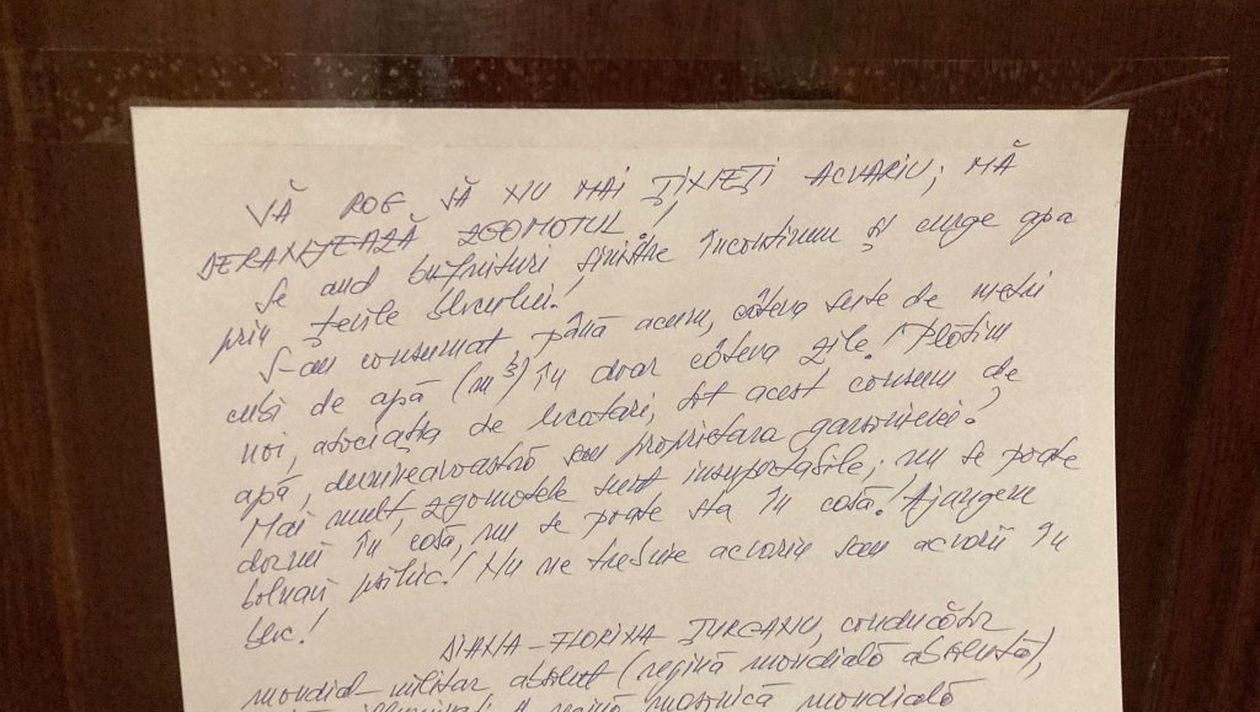 VĂ ROG SĂ NU MAI ŢINEŢI ACVARIU; MĂ
DERANJEAZĂ ZGOMOTUL!
Se aud bufnituri sinistre încontinuu şi curge apa
prin ţevile blocului!
S-au consumat până acum, câteva sute de metri
cubi de apă (m³) în doar câteva zile! Plătim
noi, asociaţia de locatari, tot acest consum de
apă, dumneavoastră sau proprietara garsonierei?
Mai mult, zgomotele sunt insuportabile; nu se poate
dormi în casă, nu se poate sta în casă! Ajungem
bolnavi psihic! Nu ne trebuie acvariu sau acvarii în
bloc!
DIANA-FLORINA ŢURCANU, conducător
mondial militar absolut (regină mondială absolută),
illuminati regină masonică mondială